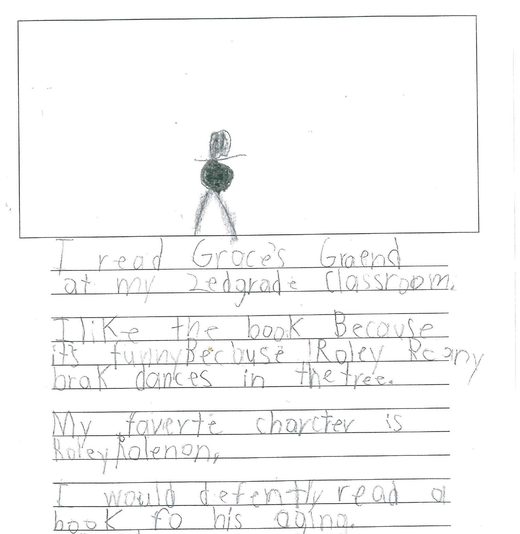 I read Grace's Graend
at my 2edgrade Classroom.
I like the book Because
it's funny Because Roley
brak dances in the tree.
My faverte charcter is
Roley
I would defently read a
book fo his aging.